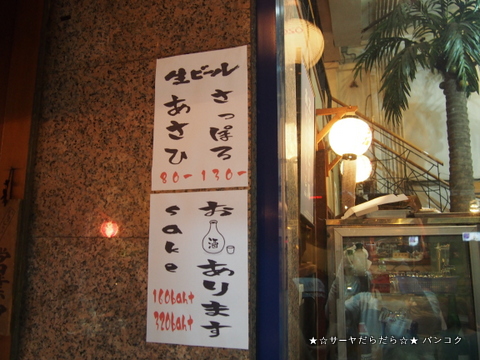 生ビール
さっぽろ
あさひ
80- 130-
お酒あります
sake
160baht
320baht
★☆サーヤだらだら☆★ バンコク